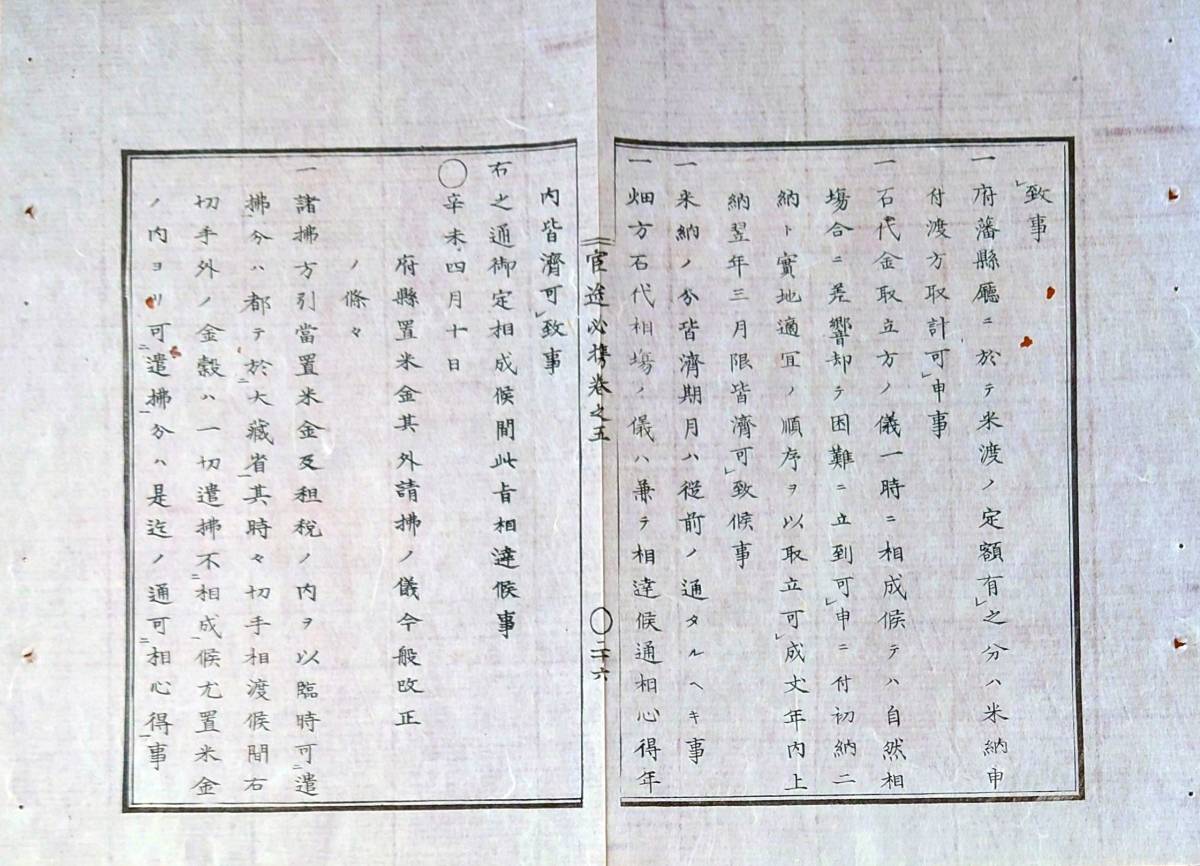 致事
一府藩縣廳ニ於テ米渡ノ定額有之分ハ米納申
付渡方取計可申事
一石代金取立方ノ儀一時ニ相成候テハ自然相
塲合ニ差響却テ困難ニ立到可申ニ付初納二
納ト實地適冝ノ順序ヲ以取立可成丈年内上
納翌年三月限皆濟可致候事
一米納ノ分皆濟期月ハ從前ノ通タルヘキ事
一畑方石代相塲ノ儀ハ兼テ相達候通相心得年
官途必携卷之五 〇二十六
内皆濟可致事
右之通御定相成候間此㫖相達候事
〇辛未四月十日
府縣置米金其外請拂ノ儀今般改正
ノ條々
一諸拂方引當置米金及租稅ノ内ヲ以臨時可遣
拂分ハ都テ於大藏省其時々切手相渡候間右
切手外ノ金穀ハ一切遣拂不相成候尤置米金
ノ内ヨリ可遣拂分ハ是迄ノ通可相心得事